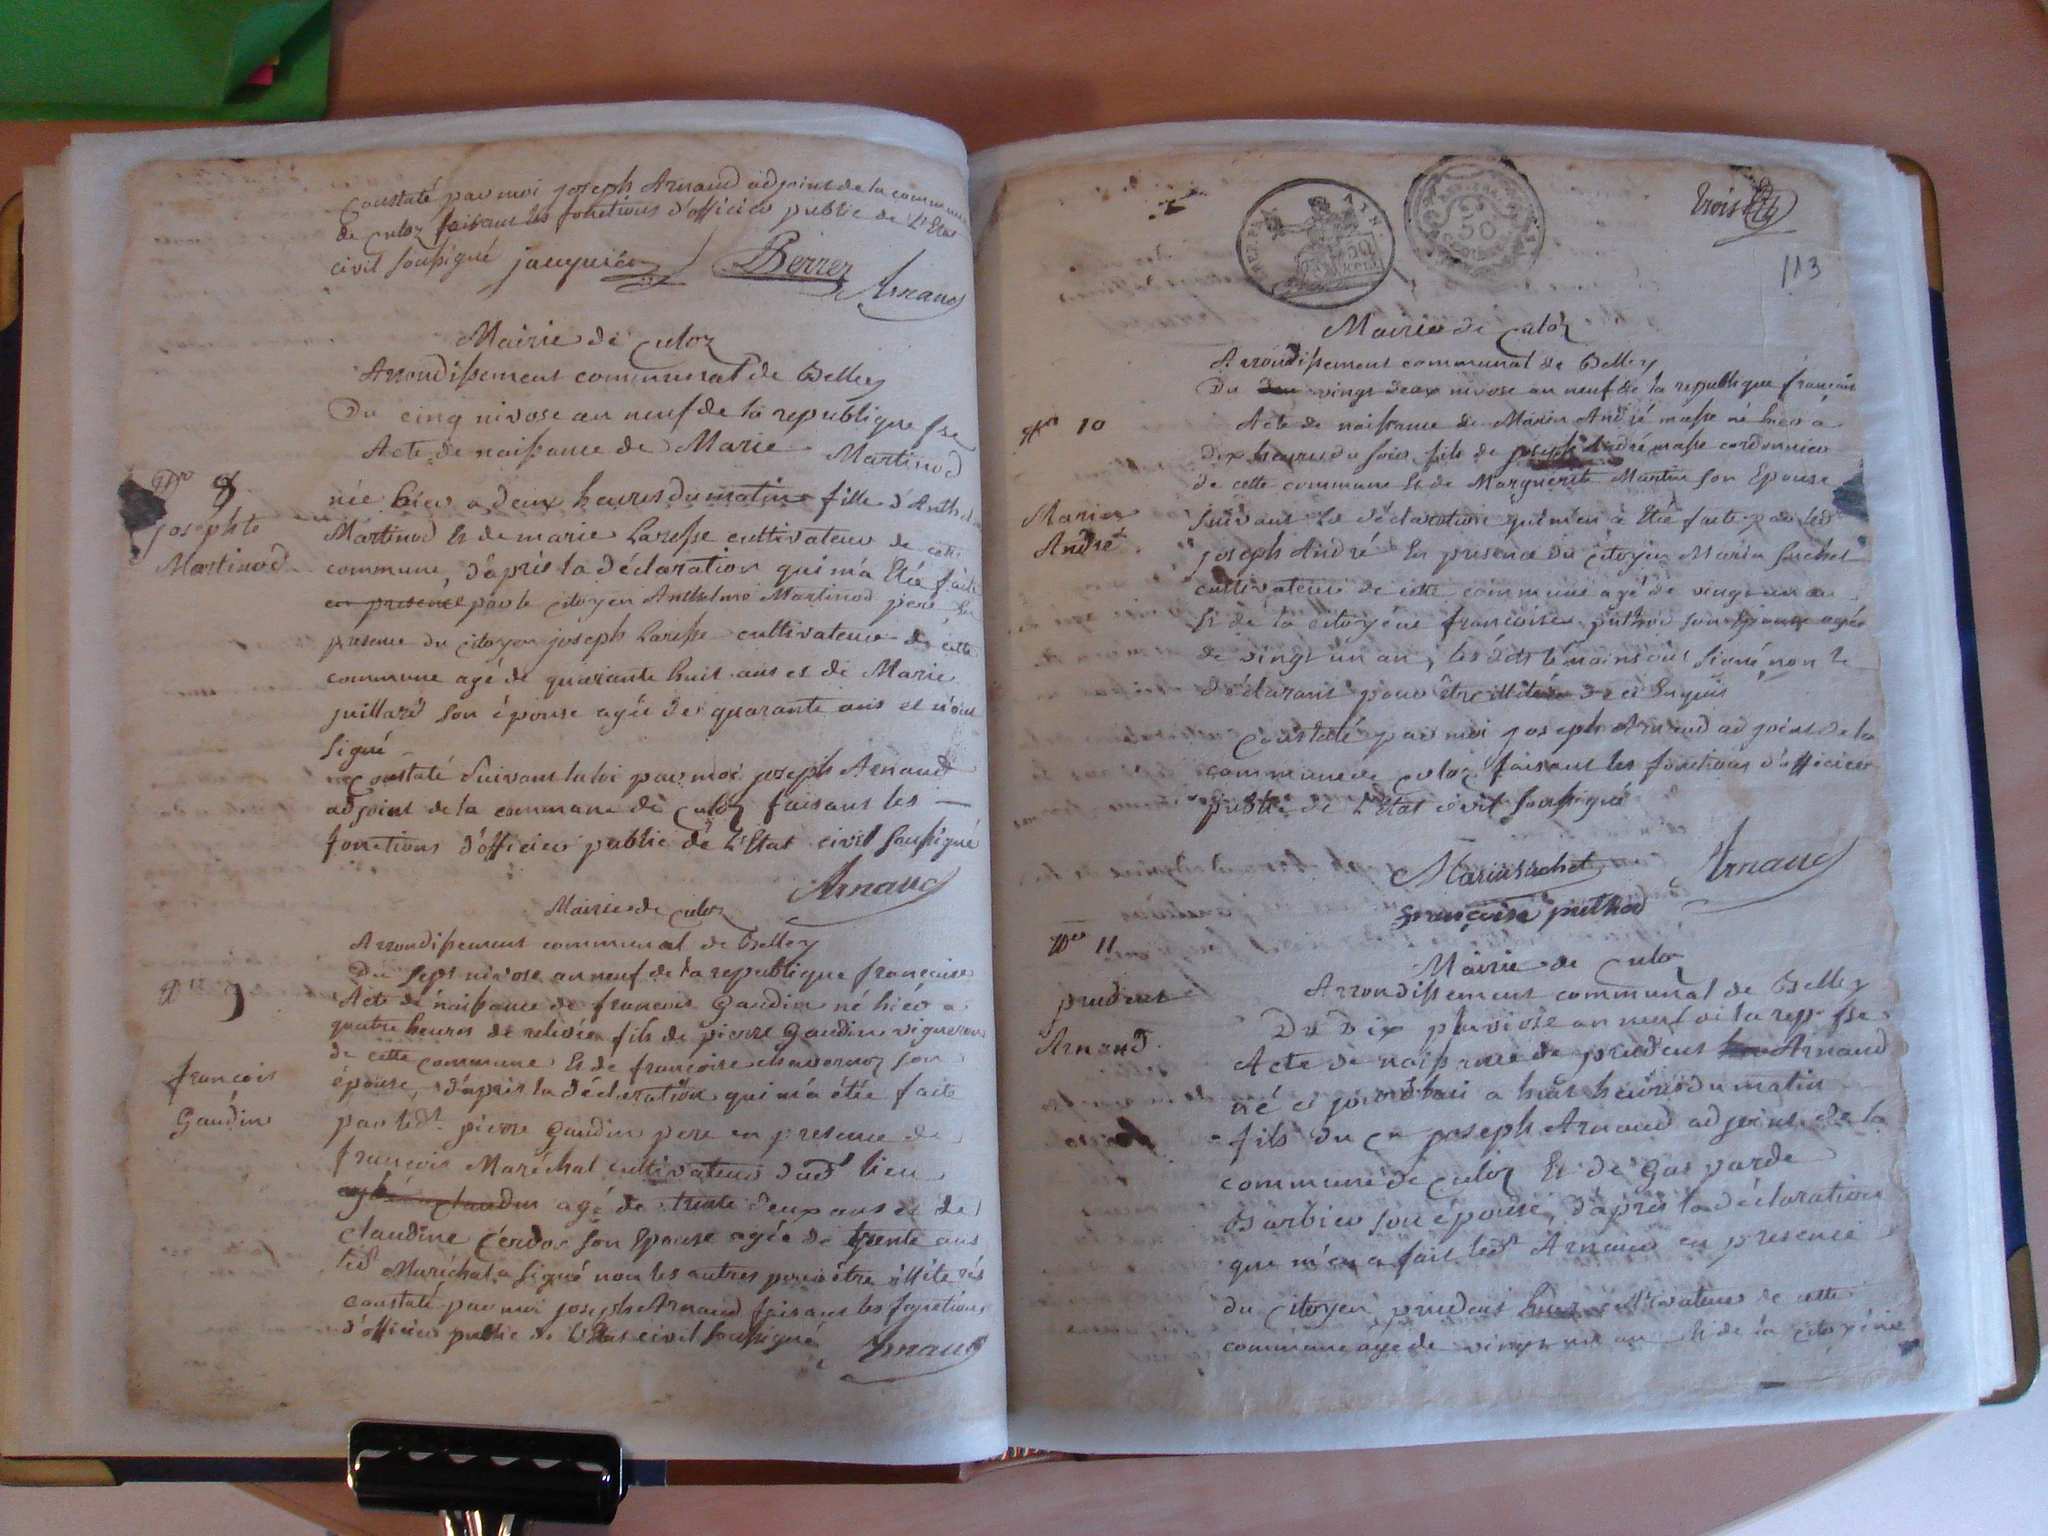 Constaté par moi joseph Arnaud adjoint de la commune
de Culoz faisant les fonctions d'officier public de l'Etat
civil soussigné
Berrez
Arnaud
Mairie de Culoz
Arrondissement communal de Belley
Du cinq nivose an neuf de la republique fse
Acte de naissance de Marie Martinod
8
josephte
Martinod
née hier a deux heures du matin fille d'Anth
Martinod Et de marie cultivateur de cette
commune, d'après la déclaration qui m'a Eté faite
en presence par le citoyen Anthelme Martinod pere En
presence du citoyen joseph cultivateur de cette
commune agé de quarante huit ans et de Marie
juillard son épouse agée de quarante ans et n'ont
signé
Constaté suivant la loi par moi joseph Arnaud
adjoint de la commune de Culoz faisant les
fonctions d'officier public de l'Etat civil soussigné
Arnaud
Mairie de Culoz
Arrondissement communal de Belley
Du sept nivose an neuf de la republique francaise
9
Acte de naissance de francois Gaudin né hier a
quatre heures de relevée fils de pierre Gaudin vigneron
de cette commune Et de francoise son
françois
Gaudin
épouse, d'après la déclaration qui m'a étée faite
par led. pierre Gaudin pere en presence de
francois Maréchal cultivateur dud lieu
agé de trente deux ans et de
claudine son Epouse agée de trente ans
led Maréchal a signé non les autres pour être illiterés
constaté par moi joseph Arnaud faisant les fonctions
d'officier public de l'Etat civil soussigné
Arnaud
AIN
50
trois
113
Mairie de Culoz
Arrondissement communal de Belley
Du vingt deux nivose an neuf de la republique français
10
Acte de naissance de Marin André masse né hier a
dix heures du soir fils de joseph André masse cordonnier
de cette commune Et de Marguerite Martin son Epouse
Marin
André
suivant la déclaration qui m'en a Eté faite par led
joseph André En presence du citoyen Marin suchet
cultivateur de cette commune agé de vingt un an
Et de la citoyene francoise puthod son epouse agée
de vingt un an, les dits témoins ont signé non le
déclarant pour être illitéré de ce Enquis
Constaté par moi joseph Arnaud adjoint de la
commune de Culoz faisant les fonctions d'officier
public de l'Etat civil soussigné
Marin suchet
Arnaud
francoise puthod
11
prudent
Arnaud
Mairie de Culoz
Arrondissement communal de Belley
Du Dix pluviose an neuf de la rep. fse
Acte de naissance de prudent Arnaud
né ce jourd'hui a huit heures du matin
fils du cn joseph Arnaud adjoint de la
commune de Culoz Et de Gasparde
Barbier son épouse, d'après la déclaration
que m'en a fait led. Arnaud en presence
du citoyen prudent cultivateur de cette
commune agé de vingt un an Et de la citoyéne